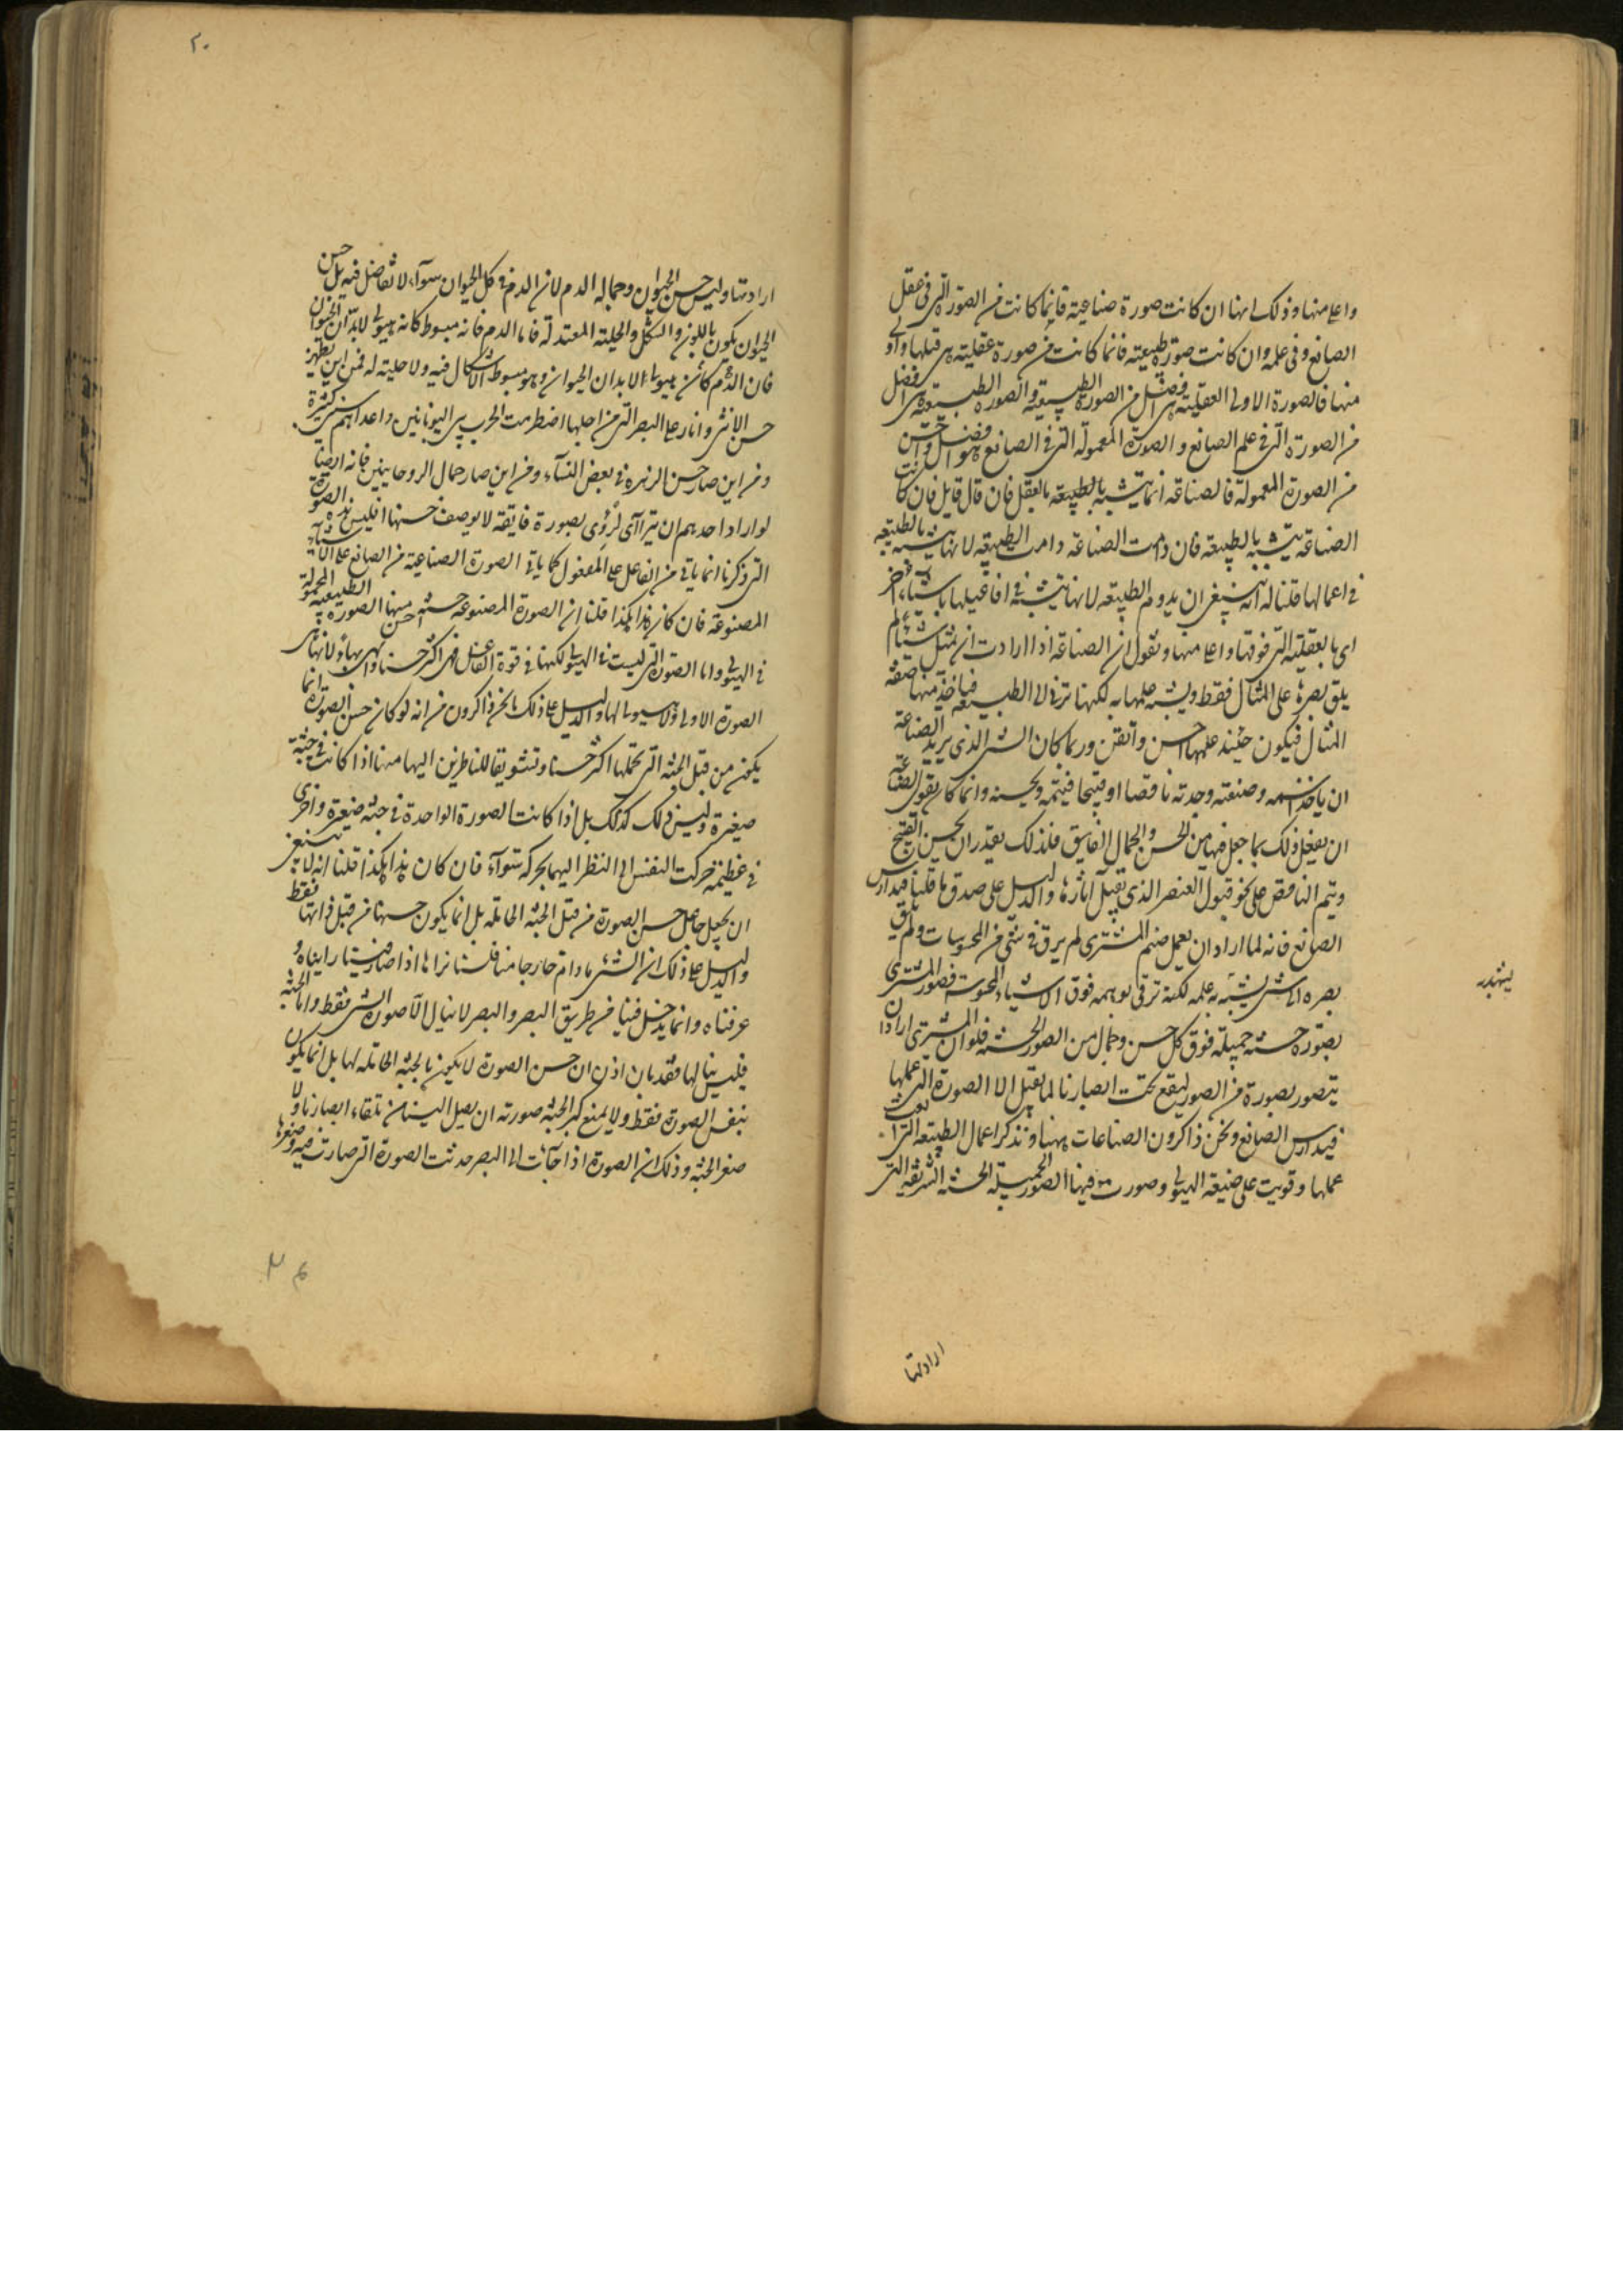 واعلي منها وذلك انها ان كانت صورة صناعية فانما كانت من الصورة التي في عقل
الصانع وفي علمه وان كانت صورة طبيعية فانما كانت من صورة عقلية هي قبلها واولي
منها فالصورة الاولي العقلية هي افضل من الصورة الطبيعية والصورة الطبيعية هي افضل
من الصورة التي في علم الصانع والصورة المعمولة التي في الصانع هو افضل واحسن
من الصورة المعمولة فالصناعة انما يتشبه بالطبيعة والطبيعة بالعقل فان قال قايل فان كانت
الصناعة يتشبه بالطبيعة فان دامت الصناعة دامت الطبيعة لانها يتشبه بالطبيعة
في اعمالها قلنا له انه ينبغي ان يدوم الطبيعة لانها يتشبه في افاعيلها باشياء اخر
اي بالعقلية التي فوقها واعلي منها ونقول ان الصناعة اذا ارادت ان يمثل شيئا لم
يلق بصره علي المثال فقط ويشبه علمها به لكنها ترقي الي الطبيعة فياخذ منها صفة
المثال فيكون حينئذ علمها احسن واتقن وربما كان الشئ الذي يريد الصناعة
ان ياخذ رسمه وصنعته وجدته ناقصا او قبيحا فيتمه ويحسنه وانما كان يقوي الصناعة
ان يفعل ذلك بما جعل فيها من الحسن والجمال الفايق فلذلك يقدر ان يحسن القبيح
ويتم الناقص علي نحو قبول العنصر الذي يقبل اثارها والدليل علي صدق ما قلنا فيدارس
الصانع فانه لما اراد ان يعمل صنم المشتري لم يرق في شئ من المحسوسات ولم يلق
بصره الي شئ يشبه به علمه لكنه ترقي بوهمه فوق الاشياء المحسوسة فصور المشتري
بصورة حسنة جميلة فوق كل حسن وجمال من الصور الحسنة فلو ان المشتري اراد ان
يتصور بصورة من الصور ليقع تحت ابصارنا لما يقبل الا الصورة التي عملها
فيدارس الصانع ونحن ذاكرون الصناعات ههنا ونذكر اعمال الطبيعة التي
عملها وقويت علي صنعة الهيولي وصورت فيها الصور الجميلة الحسنة الشريفة التي
ارادتها
٢٠
ارادتها وليس حسن الحيوان وجماله الدم لان الدم في كل الحيوان سواء لا تفاضل فيه بل حسن
الحيوان يكون باللون والشكل والحلية المعتدلة فاما الدم فانه مبسوط كانه هيولي لابدان الحيوان
فان الدم كائن هيولي لابدان الحيوان وهو مبسوط لا اشكال فيه ولا حلية له فمن اين يظهر
حسن الانثي وانار علي البصر التي من اجلها اضطرمت الحرب بين اليونانيين واعدائهم سنين كثيرة
ومن اين صار حسن الزهرة في بعض النساء ومن اين صار جمال الروحانيين فانه ايضا
لو اراد احدهم ان يتراآي لرؤي بصورة فايقة لا يوصف حسنها افليس هذه الصورة
التي ذكرنا انما ياتي من الفاعل علي المفعول كما ياتي الصورة الصناعية من الصانع علي الاشياء
المصنوعة فان كان هذا هكذا قلنا ان الصورة المصنوعة حسنة واحسن منها الصورة الطبيعية المحمولة
في الهيولي واما الصورة التي ليست في الهيولي لكنها في قوة الفاعل فهي اكثر حسنا وابهي بهاء لانها هي
الصورة الاولي ولا هيولي لها والدليل علي ذلك ما نحن ذاكرون من انه لو كان حسن الصورة انما
يكون من قبل الجثة التي تحملها اكثر حسنا وتشويقا للناظرين اليها منها اذا كانت في جثة
صغيرة وليس ذلك كذلك بل اذا كانت الصورة الواحدة في جثة صغيرة واخري
في عظيمة حركت النفس الي النظر اليهما بحركة سواء فان كان هذا هكذا قلنا انه لا ينبغي
ان يجعل جاعل حسن الصورة من قبل الجثة الحاملة بل انما يكون حسنها من قبل ذاتها فقط
والدليل علي ذلك ان الشئ ما دام خارجا منا فلسنا نراه اذا صار فينا رايناه و
عرفناه وانما يدخل فينا من طريق البصر والبصر لا ينال الا صورة الشئ فقط واما الجثة
فليس ينالها فقد بان اذن ان حسن الصورة لا يكون بالجثة الحاملة لها بل انما يكون
بنفس الصورة فقط ولا يمنع كبر الجثة صورته ان يصل الينا من تلقاء ابصارنا ولا
صغر الجثة وذلك ان الصورة اذا جآءت الي البصر حدثت الصورة التي صارت فيه وصغرها